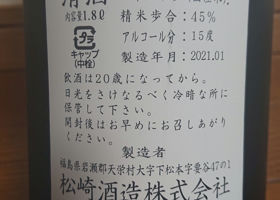 清酒
内容量1.8ℓ
精米歩合：45%
アルコール分：15度
製造年月：2021.01
プラ
キャップ
(中栓)
飲酒は20歳になってから。
日光をさけなるべく冷暗な所に
保管して下さい。
開封後はお早めにお召しあがり
ください。
製造者
福島県岩瀬郡天栄村大字下松本字要谷47の1
松崎酒造株式会社